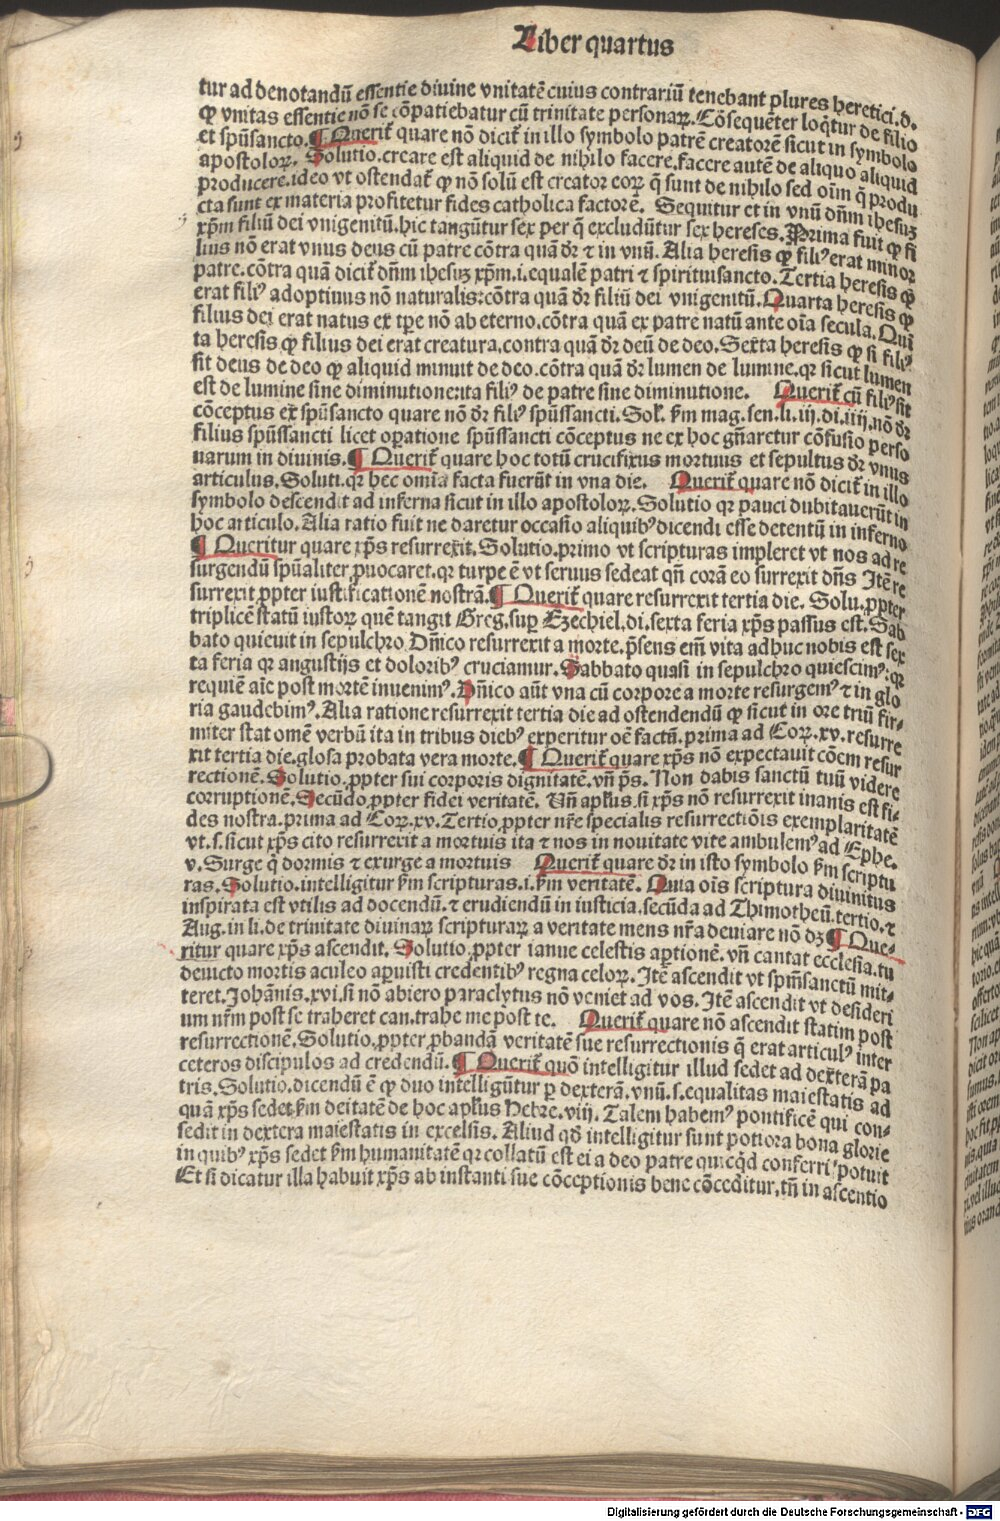 Liber quartus
tur ad denotandū essentie diuine vnitatē cuius contrariū tenebant plures heretici.d.
ꝙ vnitas essentie nō se cōpatiebatur cū trinitate personaꝝ. Cōsequēter loqͥtur de filio
et spūsancto. ¶ Querit̄ quare nō dicit̄ in illo symbolo patrē creatorē sicut in symbolo
apostoloꝝ. Solutio.creare est aliquid de nihilo facere.facere autē de aliquo aliquid
producere.ideo vt ostendat̄ ꝙ nō solū est creator eoꝝ q̄ sunt de nihilo sed oīm q̄ produ
cta sunt ex materia profitetur fides catholica factorē. Sequitur et in vnū dn̄m ihesuꝫ
xp̄m filiū dei vnigenitū.hic tangūtur sex per q̄ excludūtur sex hereses. Prima fuit ꝙ fi
lius nō erat vnus deus cū patre cōtra quā dr̄ ⁊ in vnū. Alia heresis ꝙ filiꝰ erat minor
patre.cōtra quā dicit̄ dn̄m ihesuꝫ xp̄m.i.equalē patri ⁊ spirituisancto. Tertia heresis ꝙ
erat filiꝰ adoptiuus nō naturalis:cōtra quā dr̄ filiū dei vnigenitū. Quarta heresis ꝙ
filius dei erat natus ex tp̄e nō ab eterno.cōtra quā ex patre natū ante oīa secula. Quī
ta heresis ꝙ filius dei erat creatura.contra quā dr̄ deū de deo. Sexta heresis ꝙ si filiꝰ
sit deus de deo ꝙ aliquid minuit de deo.cōtra quā dr̄ lumen de lumine.qꝛ sicut lumen
est de lumine sine diminutione:ita filiꝰ de patre sine diminutione. Querit̄ cū filiꝰ sit
cōceptus ex spūsancto quare nō dr̄ filiꝰ spūssancti. Sol. ẜm mag.sen.li.iij.di.iiij.nō dr̄
filius spūssancti licet oꝑatione spūssancti cōceptus ne ex hoc gn̄aretur cōfusio perso
narum in diuinis. ¶ Querit̄ quare hoc totū crucifixus mortuus et sepultus dr̄ vnus
articulus. Soluti.qꝛ hec omīa facta fuerūt in vna die. Querit̄ quare nō dicit̄ in illo
symbolo descendit ad inferna sicut in illo apostoloꝝ. Solutio qꝛ pauci dubitauerūt in
hoc articulo. Alia ratio fuit ne daretur occasio aliquibꝰ dicendi esse detentū in inferno
¶ Queritur quare xp̄s resurrexit. Solutio.primo vt scripturas impleret vt nos ad re
surgendū spūaliter ꝓuocaret.qꝛ turpe ē vt seruus sedeat qn̄ corā eo surrexit dn̄s Itē re
surrexit ꝓpter iustificationē nostrā. ¶ Querit̄ quare resurrexit tertia die. Solu.ꝓpter
triplicē statū iustoꝝ quē tangit Greg.suꝑ Ezechiel.di.sexta feria xp̄s passus est. Sab
bato quieuit in sepulchro Dn̄ico resurrexit a morte.p̄sens em̄ vita adhuc nobis est sex
ta feria qꝛ angustijs et doloribꝰ cruciamur. Sabbato quasi in sepulchro quiescimꝰ:qꝛ
requiē aīe post mortē inuenimꝰ. Dn̄ico aūt vna cū corpore a morte resurgemꝰ ⁊ in glo
ria gaudebimꝰ. Alia ratione resurrexit tertia die ad ostendendū ꝙ sicut in ore triū fir-
miter stat omē verbū ita in tribus diebꝰ experitur oē factū.prima ad Coꝝ.xv.resurre
xit tertia die.glosa probata vera morte. ¶ Querit̄ quare xp̄s nō expectauit cōem resur
rectionē. Solutio.ꝓpter sui corporis dignitatē.vn̄ p̄s. Non dabis sanctū tuū videre
corruptionē. Secūdo ꝓpter fidei veritatē. Vn̄ apl̄us.si xp̄s nō resurrexit inanis est fi-
des nostra.prima ad Coꝝ.xv. Tertio ꝓpter nr̄e specialis resurrectiōis exemplaritatē
vt.s.sicut xp̄s cito resurrexit a mortuis ita ⁊ nos in nouitate vite ambulemꝰ ad Ephe.
v. Surge q̇ dormis ⁊ exurge a mortuis Querit̄ quare dr̄ in isto symbolo ẜm scriptu
ras. Solutio.intelligitur ẜm scripturas.i.ẜm veritatē. Quia oīs scriptura diuinitus
inspirata est vtilis ad docendū.⁊ erudiendū in iusticia.secūda ad Thimotheū.tertio.⁊
Aug.in li.de trinitate diuinaꝝ scripturaꝝ a veritate mens nr̄a deuiare nō dꝫ ¶ Que-
ritur quare xp̄s ascendit. Solutio ꝓpter ianue celestis aꝑtionē.vn̄ cantat ecclesia.tu
deuicto mortis aculeo aꝑuisti credentibꝰ regna celoꝝ. Itē ascendit vt spm̄sanctū mit-
teret. Johānis.xvi.si nō abiero paraclytus nō veniet ad vos. Itē ascendit vt desideri
um nr̄m post se traheret can.trahe me post te. Querit̄ quare nō ascendit statim post
resurrectionē. Solutio.ꝓpter ꝓbandā veritatē sue resurrectionis q̄ erat articulꝰ inter
ceteros discipulos ad credendū. ¶ Querit̄ quō intelligitur illud sedet ad dexterā pa
tris. Solutio.dicendū ē ꝙ duo intelligūtur ꝑ dexterā.vnū.s.equalitas maiestatis ad
quā xp̄s sedet.ẜm deitatē de hoc apl̄us Hebre.viij. Talem habemꝰ pontificē qui con-
sedit in dextera maiestatis in excelsis. Aliud qd̄ intelligitur sunt potiora bona glorie
in quibꝰ xp̄s sedet ẜm humanitatē qꝛ collatū est ei a deo patre quicqͥd conferri potuit
Et si dicatur illa habuit xp̄s ab instanti sue cōceptionis bene cōceditur.tn̄ in ascentio
Digitalisierung gefördert durch die Deutsche Forschungsgemeinschaft - DFG